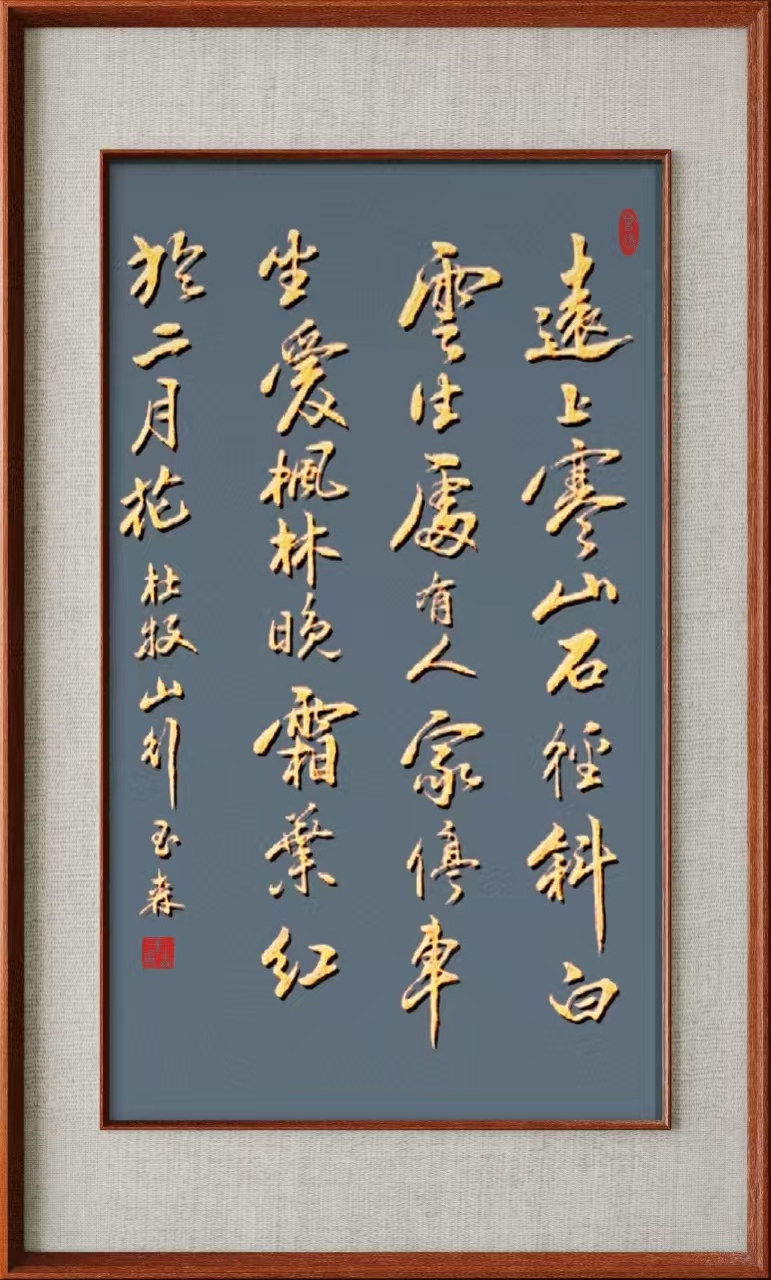 遠上寒山石徑斜白
雲生處有人家停車
坐愛楓林晚霜葉紅
於二月花 杜牧山行 玉森